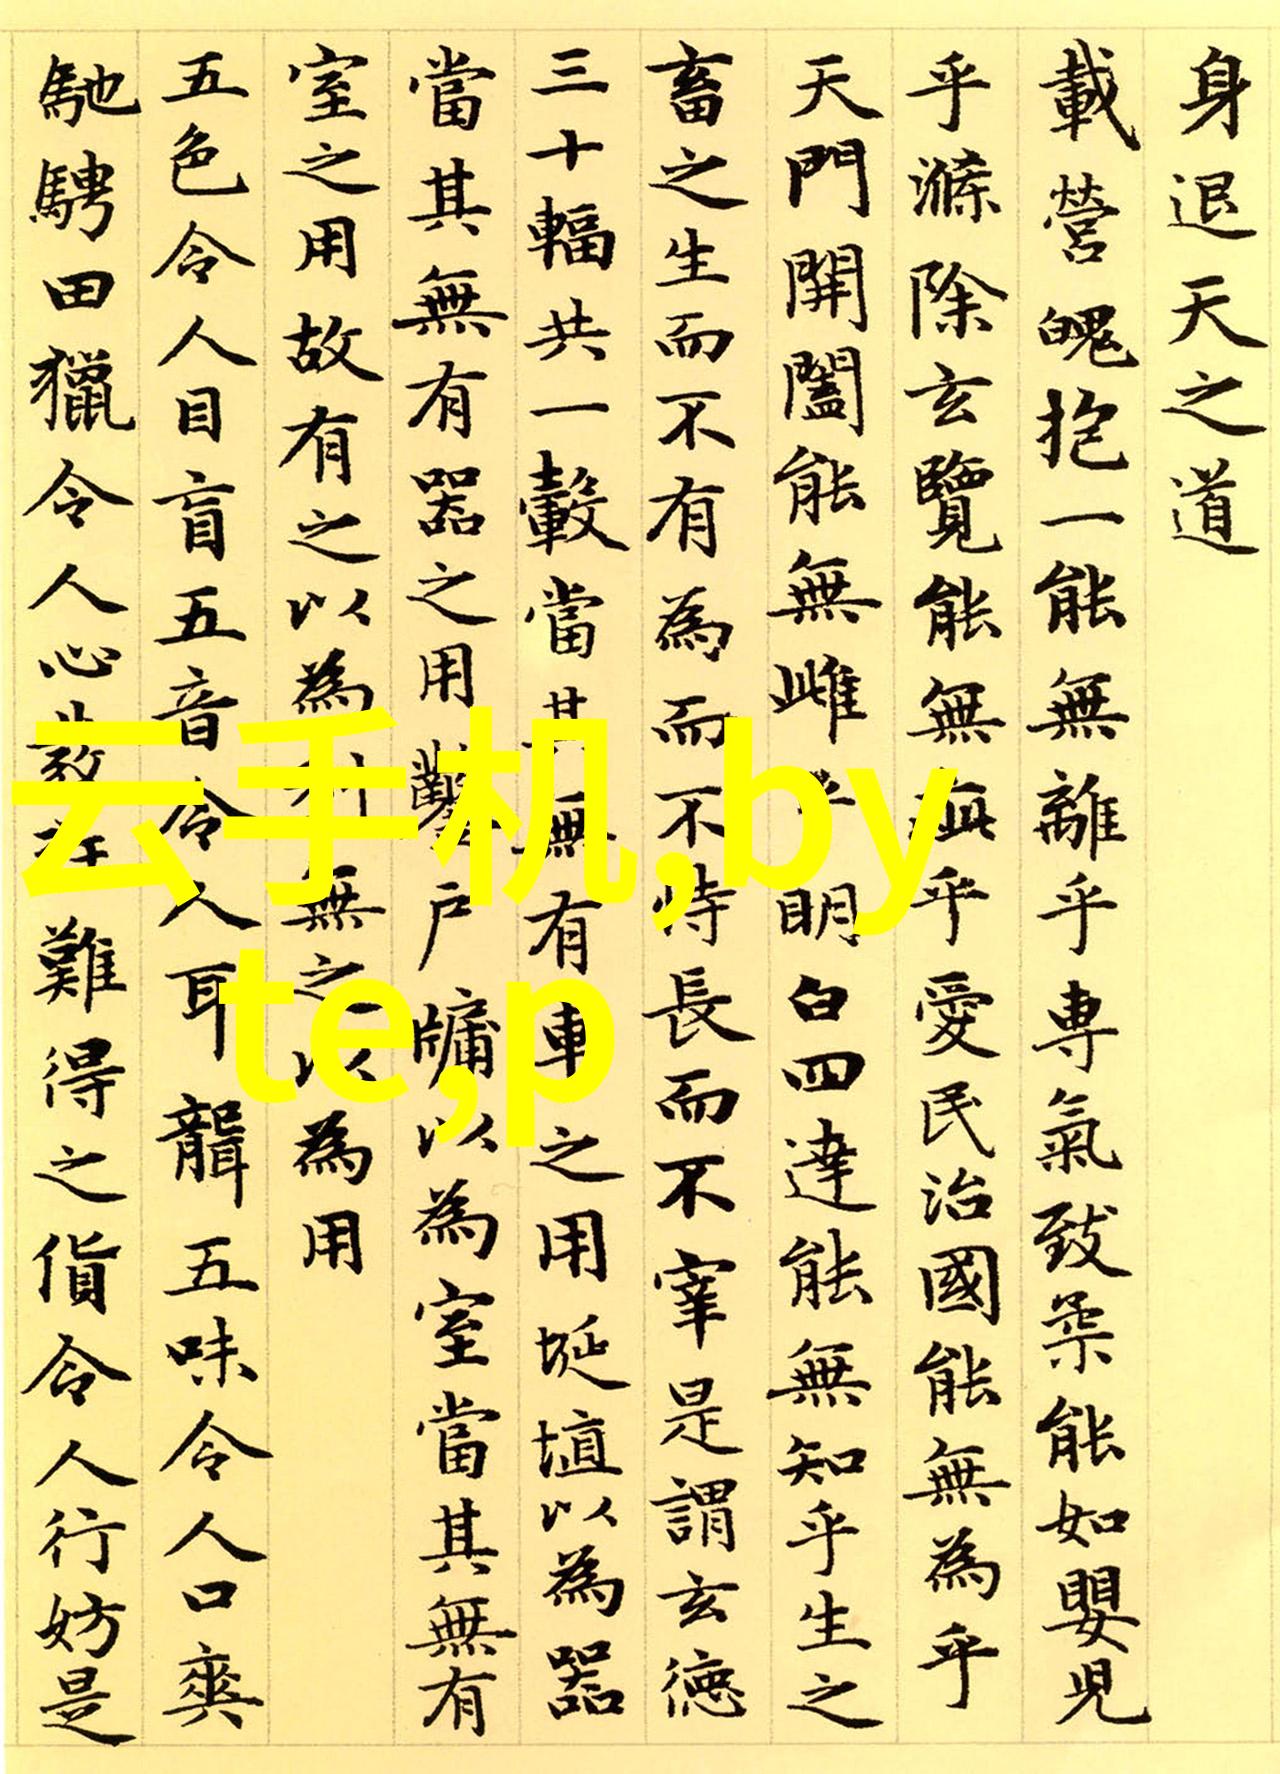 身退天之道
載營魄抱一能無離乎專氣致柔能如嬰兒
乎滌除玄覽能無疵乎愛民治國能無為乎
天門開闔能無雌乎明白四達能無知乎生之
畜之生而不有為而不恃長而不宰是謂玄德
三十輻共一轂當其無有車之用埏埴以為器
當其無有器之用鑿戶牖以為室當其無有
室之用故有之以為利無之以為用
五色令人目盲五音令人耳聾五味令人口爽
馳騁田獵令人心難得之貨令人行妨是
云手机,by
te,p